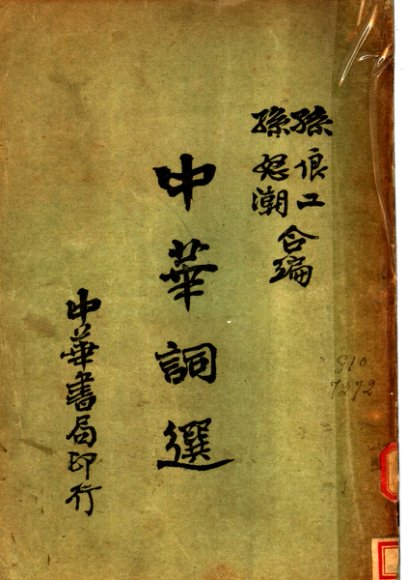 孫俍工
孫怒潮
合編
中華詞選
中華書局印行
810
7272